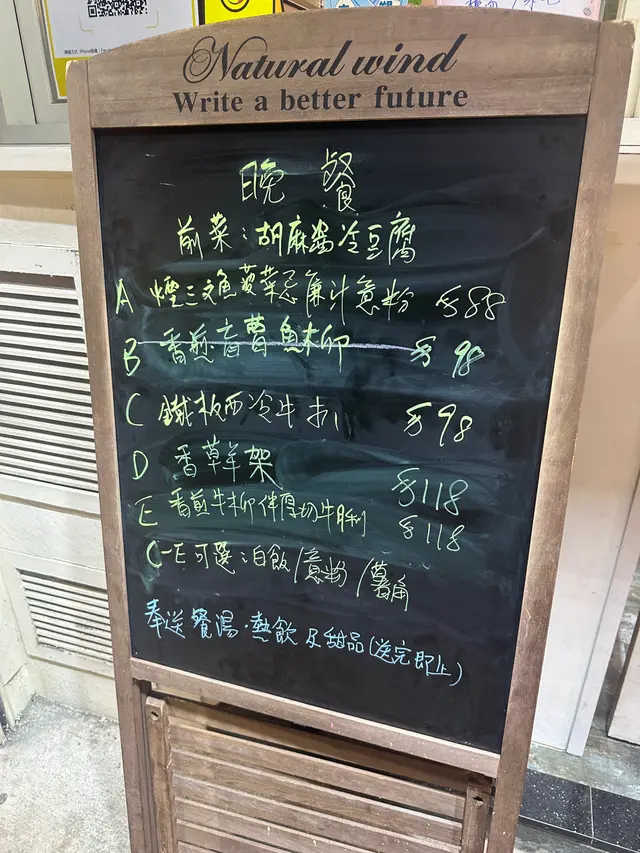 Natural wind
Write a better future
晚餐
前菜：胡麻醬冷豆腐
A 煙三文魚菠菜忌廉汁意粉 $88
B 香煎吉曹魚柳 $98
C 鐵板西冷牛扒 $98
D 香草羊架 $118
E 香煎牛柳伴厚切牛脷 $118
C-E可選：白飯/意粉/薯角
奉送餐湯·熱飲及甜品(送完即止)